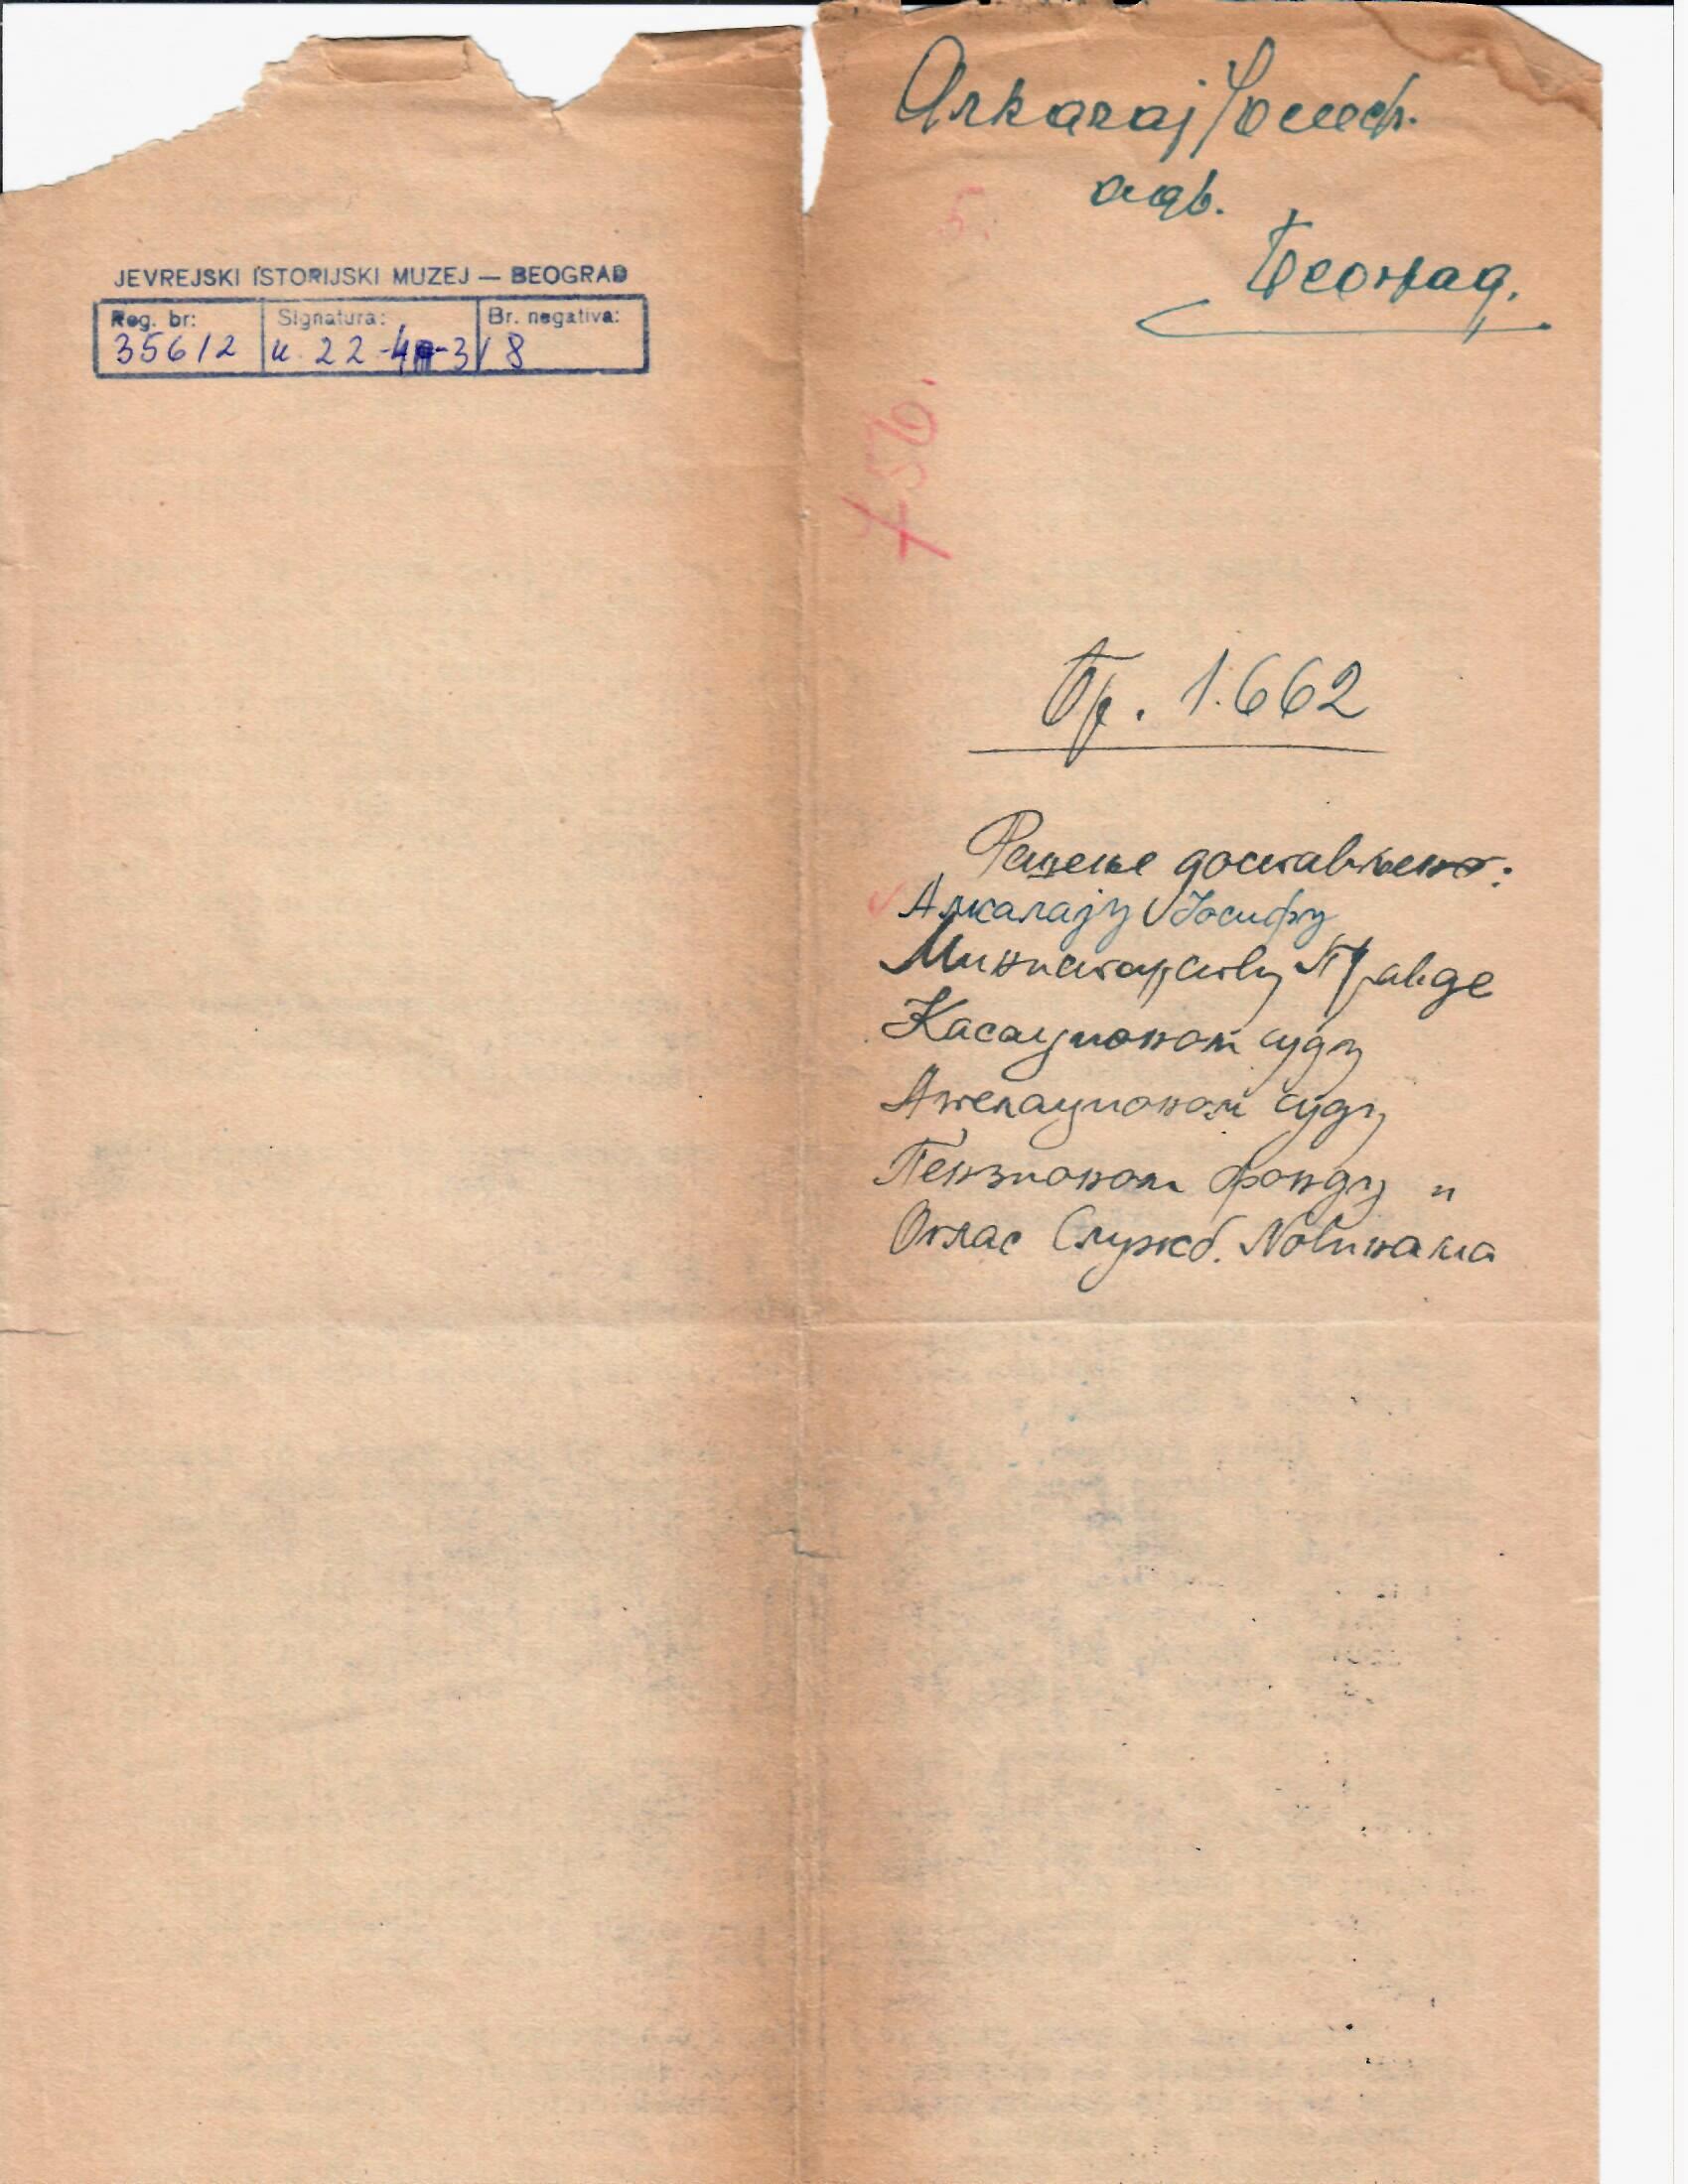 JEVREJSKI ISTORIJSKI MUZEJ — BEOGRAD
Reg. br: Signatura: Br. negativa:
35612 к. 22-4-3/8
Алкалај Јосиф.
адв.
Београд.
756.
Бр. 1.662
Решење достављено:
Алкалају Јосифу
Министарству Правде
Касационом суду
Апелационом суду
Пензионом фонду и
Оглас Службб. Новинама